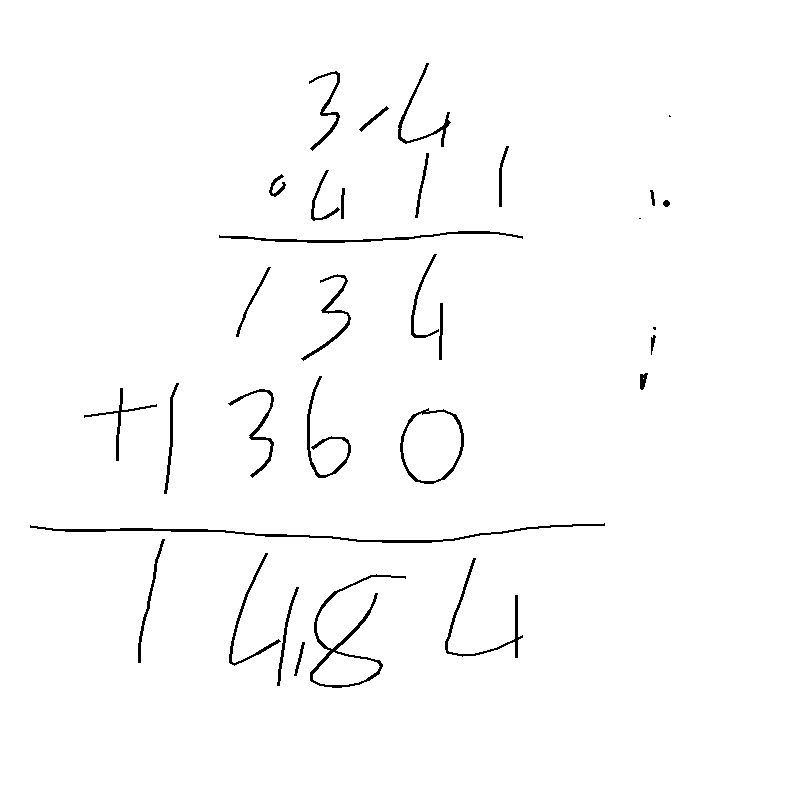 3.4
°4 1 1
1 3 4
+1 3 6 0
1 4,8 4